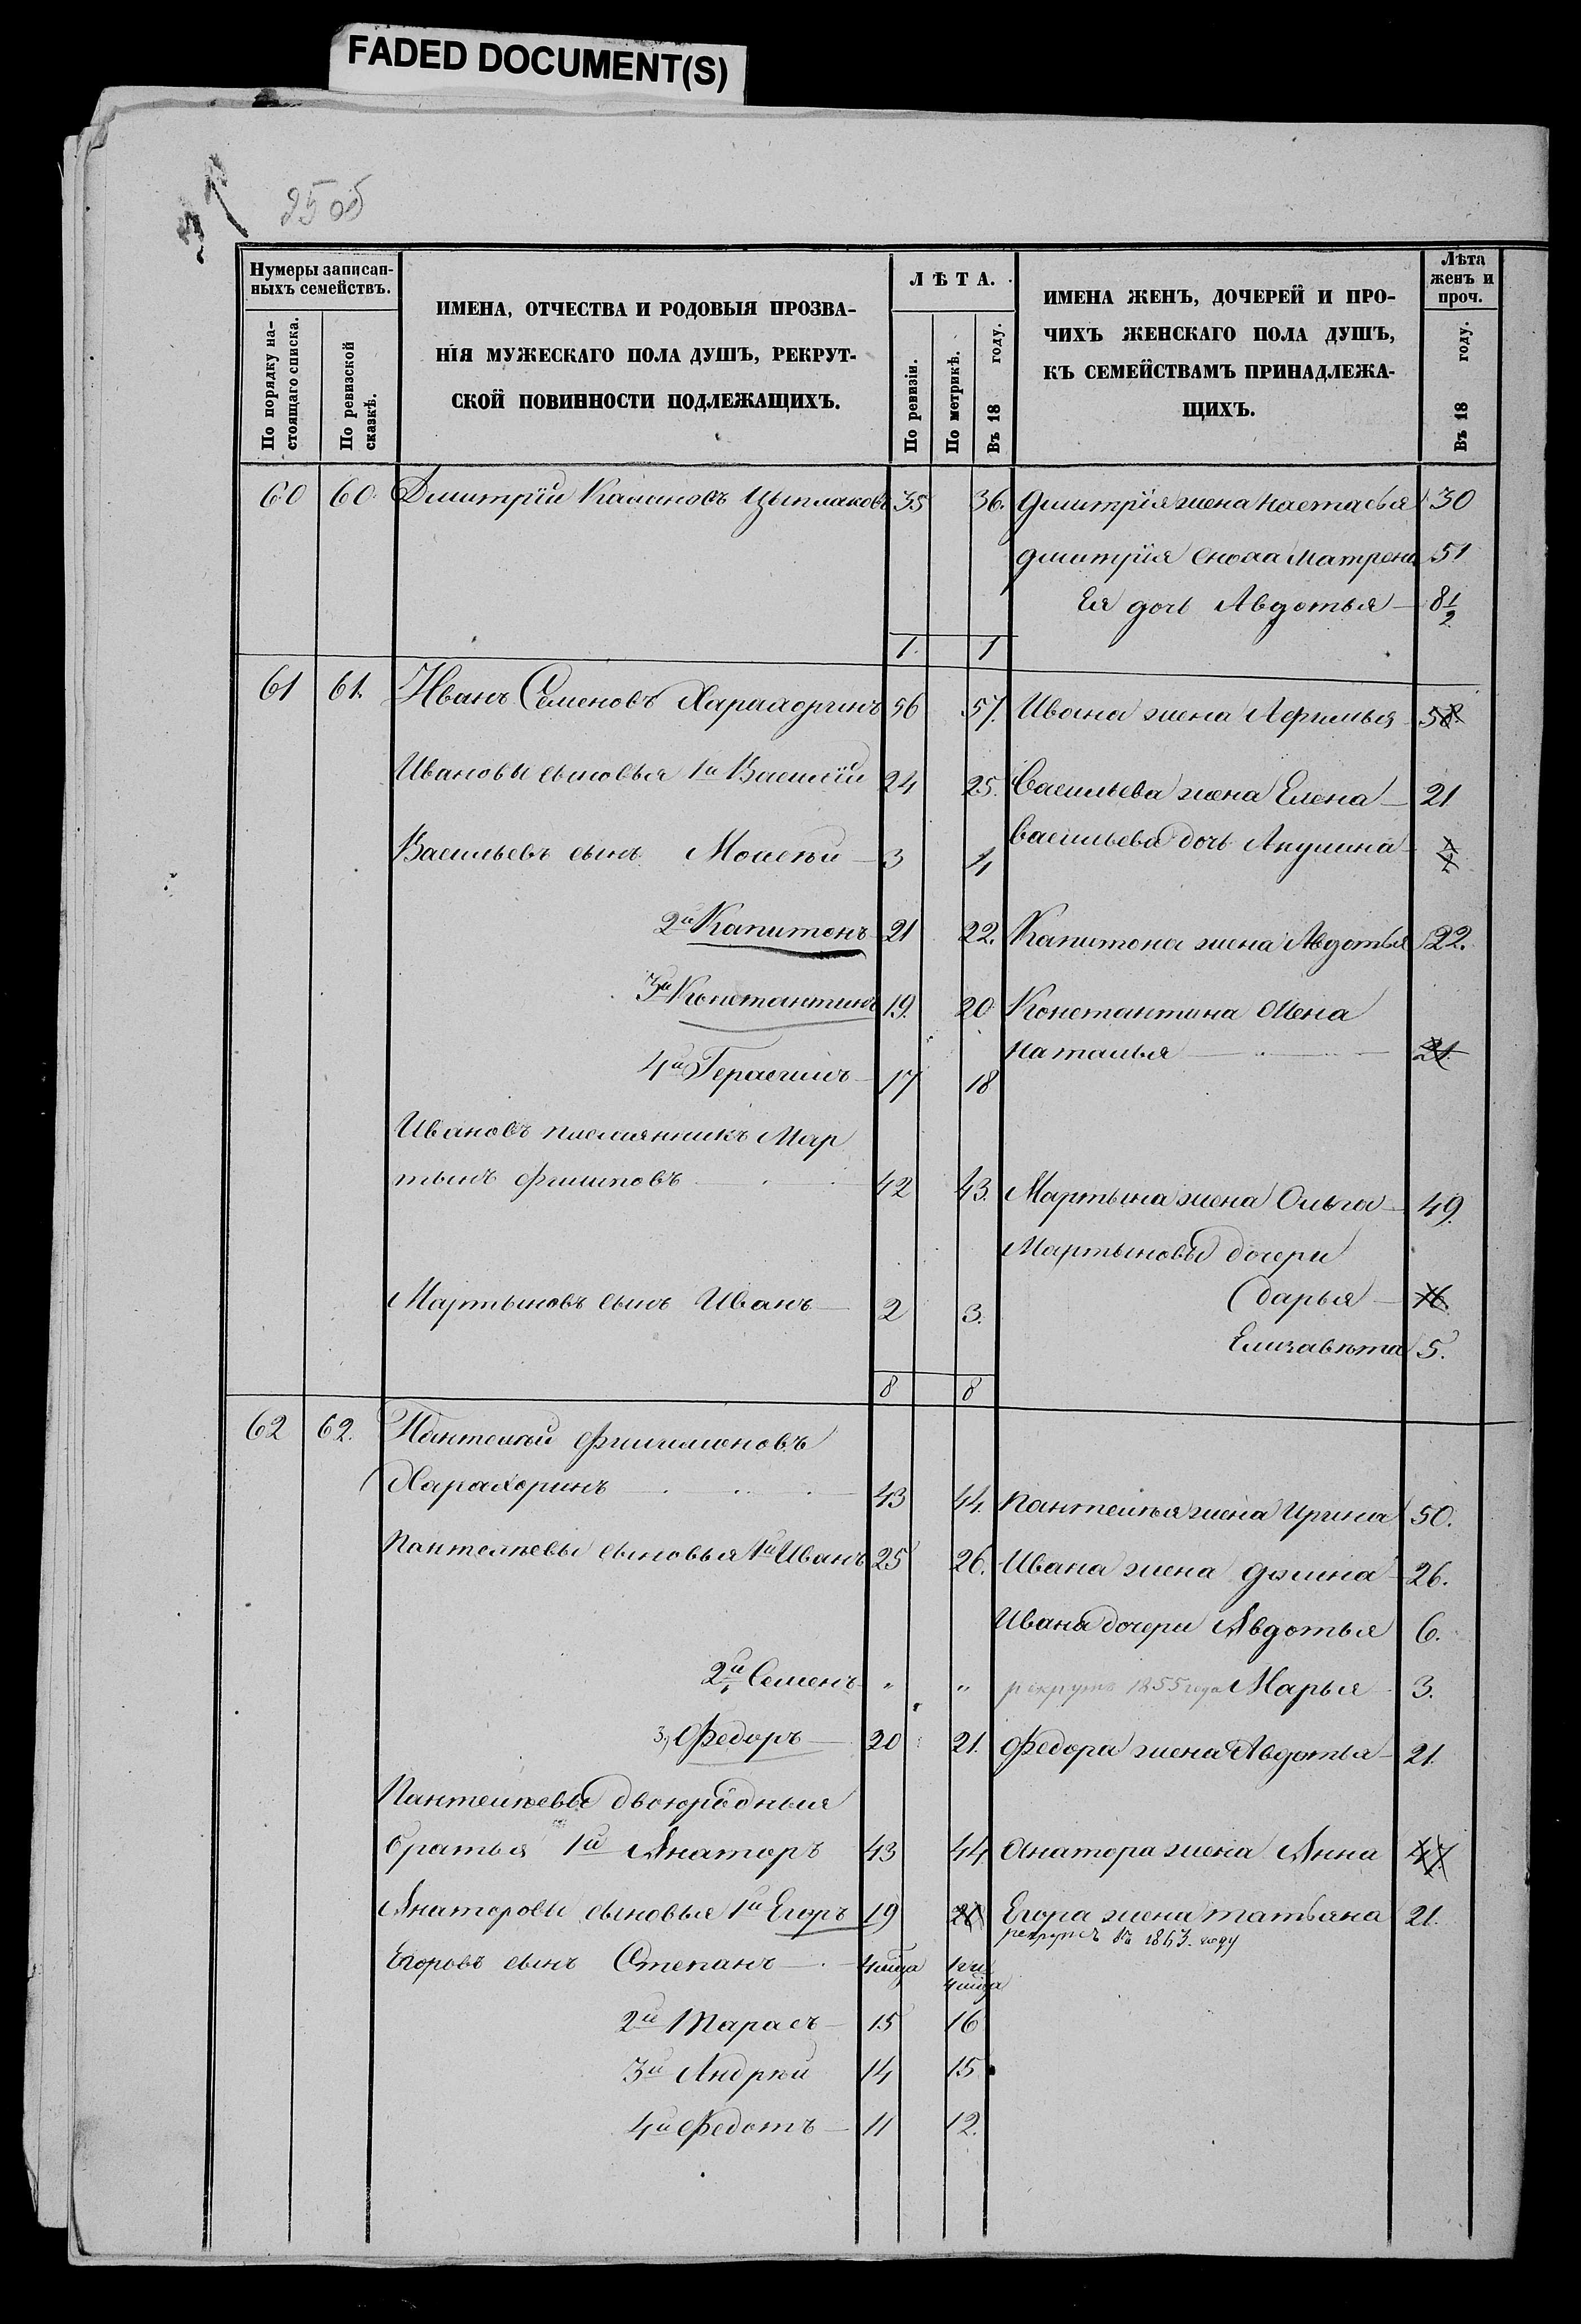 FADED DOCUMENT(S)
25 об
Нумеры записан-
ныхъ семействъ.
По порядку на-
стоящаго списка.
По ревизской
сказкѣ.
ИМЕНА, ОТЧЕСТВА И РОДОВЫЯ ПРОЗВА-
НІЯ МУЖЕСКАГО ПОЛА ДУШЪ, РЕКРУТ-
СКОЙ ПОВИННОСТИ ПОДЛЕЖАЩИХЪ.
ЛѢТА.
По ревизіи.
По метрикѣ.
Въ 18 году.
ИМЕНА ЖЕНЪ, ДОЧЕРЕЙ И ПРО-
ЧИХЪ ЖЕНСКАГО ПОЛА ДУШЪ,
КЪ СЕМЕЙСТВАМЪ ПРИНАДЛЕЖА-
ЩИХЪ.
Лѣта
женъ и
проч.
Въ 18 году.
60 60. Дмитрій Калиновъ Цыплаковъ 35 36. Дмитрія жена Настасья 30
Дмитрія сноха Матрена 51
Ея дочь Авдотья 8 1/2
1. 1
61 61. Иванъ Семеновъ Харахоринъ 56 57. Ивана жена Афимья 58.
Ивановы сыновья 1й Василій 24 25. Васильева жена Елена 21
Васильевъ сынъ Моисѣй 3 4 Васильева дочь Акулина
2й Капитонъ 21 22. Капитона жена Авдотья 22.
3й Константинъ 19. 20 Константина жена
Наталья 21.
4й Герасимъ 17 18
Ивановъ племянникъ Мар
тынъ Филиповъ 42 43. Мартына жена Ольга 49.
Мартыновы дочери
Мартыновъ сынъ Иванъ 2 3. Дарья 16.
Елизавѣта 5.
8 8
62 62. Пантелѣй Филимоновъ
Харахоринъ 43 44. Пантелѣя жена Ирина 50.
Пантелѣевы сыновья 1й Иванъ 25 26. Ивана жена Домна 26.
Ивана дочери Авдотья 6.
2й Семенъ " " рекрутъ 1855 года Марья 3.
3, Федоръ 20 21. Федора жена Авдотья 21.
Пантелѣевы двоюродныя
братья 1й Анаторъ 43 44 Анатора жена Анна 47
Анаторовы сыновья 1й Егоръ 19 Егора жена Татьяна 21.
рекрутъ въ 1863. году
Егоровъ сынъ Степанъ 4 мца 1 г и
4 мца
2й Тарасъ 15 16
3й Андрѣй 14 15
4й Федотъ 11 12.